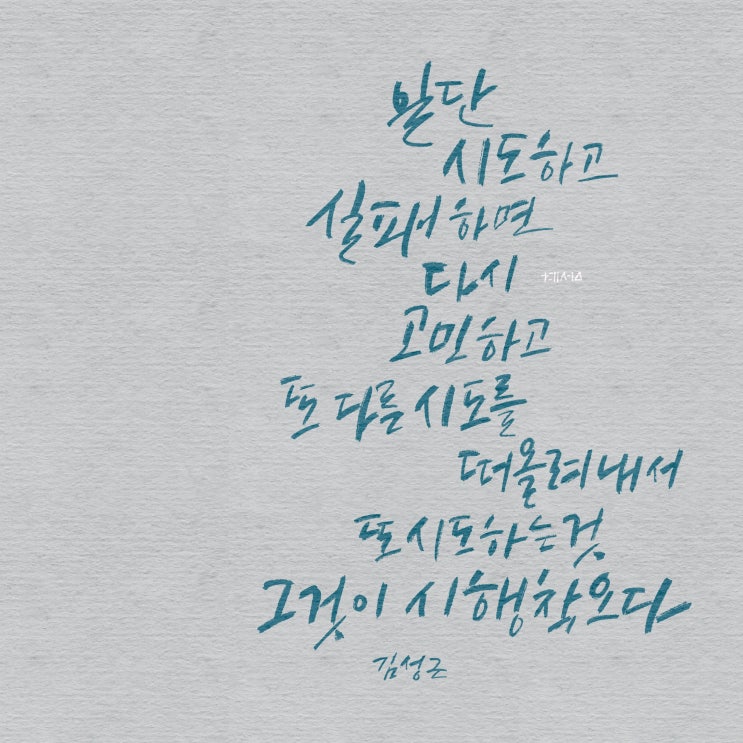 일단
시도하고
실패하면
다시
고민하고
또 다른 시도를
떠올려내서
또 시도하는 것
그것이 시행착오다
김성근